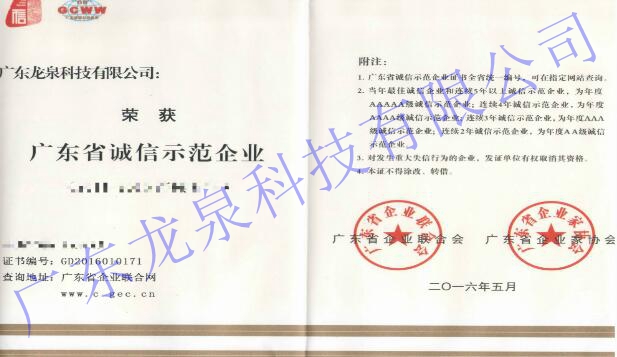 信
GCWW
广东龙泉科技有限公司:
荣 获
广东省诚信示范企业
证书编号: GD2016010171
查询地址: 广东省企业联合网
www.c-gec.cn
附注:
1. 广东省诚信示范企业证书全省统一编号, 可在指定网站查询。
2. 当年最佳诚信企业和连续5年以上诚信示范企业, 为年度
AAAAA级诚信示范企业; 连续4年诚信示范企业, 为年度
AAAA级诚信示范企业; 连续3年诚信示范企业, 为年度AAA
级诚信示范企业; 连续2年诚信示范企业, 为年度AA级诚信
示范企业。
3. 对发生重大失信行为的企业, 发证单位有权取消其资格。
4. 本证不得涂改、转借。
广东省企业联合会
广东省企业家协会
广东省企业联合会
广东省企业家协会
二〇一六年五月
广东龙泉科技有限公司